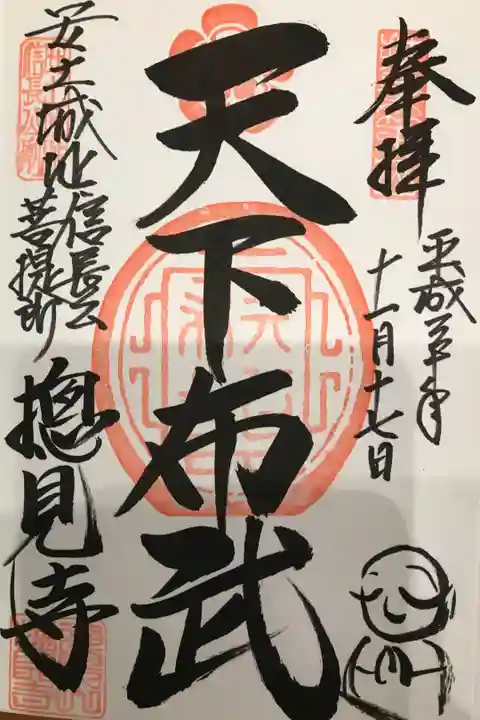 奉拝
平成三十年
十一月十七日
天下布武
安土城址
信長公
菩提所
摠見寺